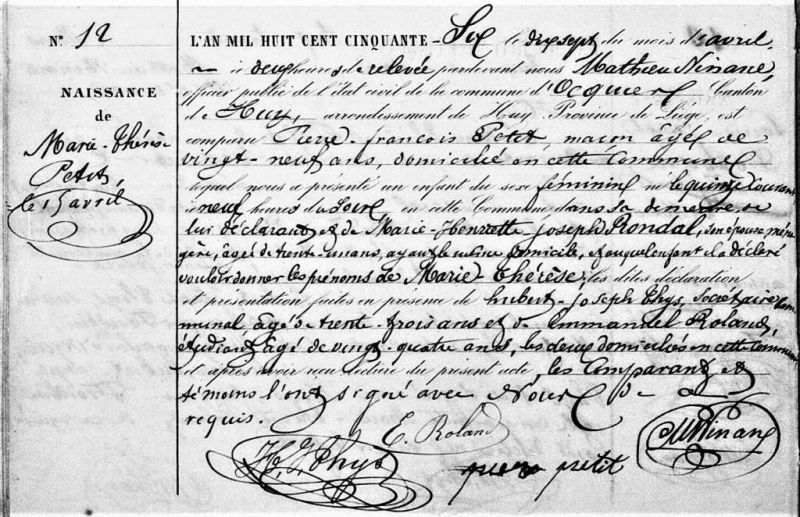 N.° 12
NAISSANCE
de
Marie-Thérèse
Petit,
le 15 avril
L'AN MIL HUIT CENT CINQUANTE-Six le dix sept du mois d'avril,
à deux heures de relevée pardevant nous Mathieu Ninane,
officier public de l'état civil de la commune d'Ocquier, Canton
de Huy, arrondissement de Huy Province de Liège, est
comparu Pierre-françois Petit, maçon âgé de
vingt-neuf ans, domicilié en cette Commune
lequel nous a présenté un enfant du sexe féminin né le quinze courant
à neuf heures du Soir en cette Commune dans sa demeure, de
lui déclarant et de Marie-Henriette-Joseph Rondal, son épouse, mena-
gère, âgée de trente-un ans, ayant le même domicile, et auquel enfant il a déclaré
vouloir donner les prénoms de Marie Thérèse; les dites déclaration
et présentation faites en présence de hubert-Joseph Thys, Secrétaire Com
munal, âgé de trente-trois ans et de Emmanuel Roland,
étudiant âgé de vingt-quatre ans, les deux domiciliés en cette Commune
et après avoir reçu lecture du présent acte, les Comparant et
témoins l'ont signé avec Nous de ce
requis.
E. Roland
H. J. Thys
pierre petit
M Ninane